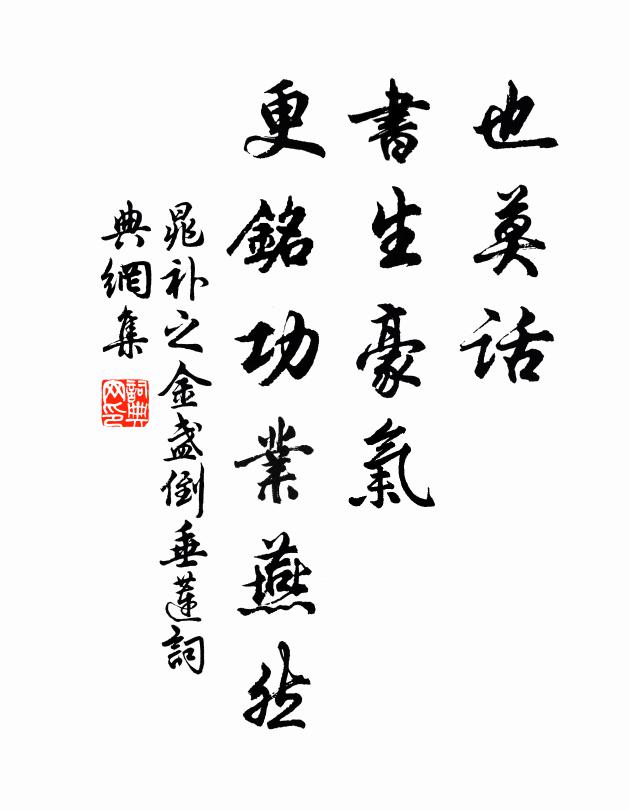 也莫话
書生豪氣
更銘功業燕然
晁补之金盏倒垂莲詞
典網集
詞典网印